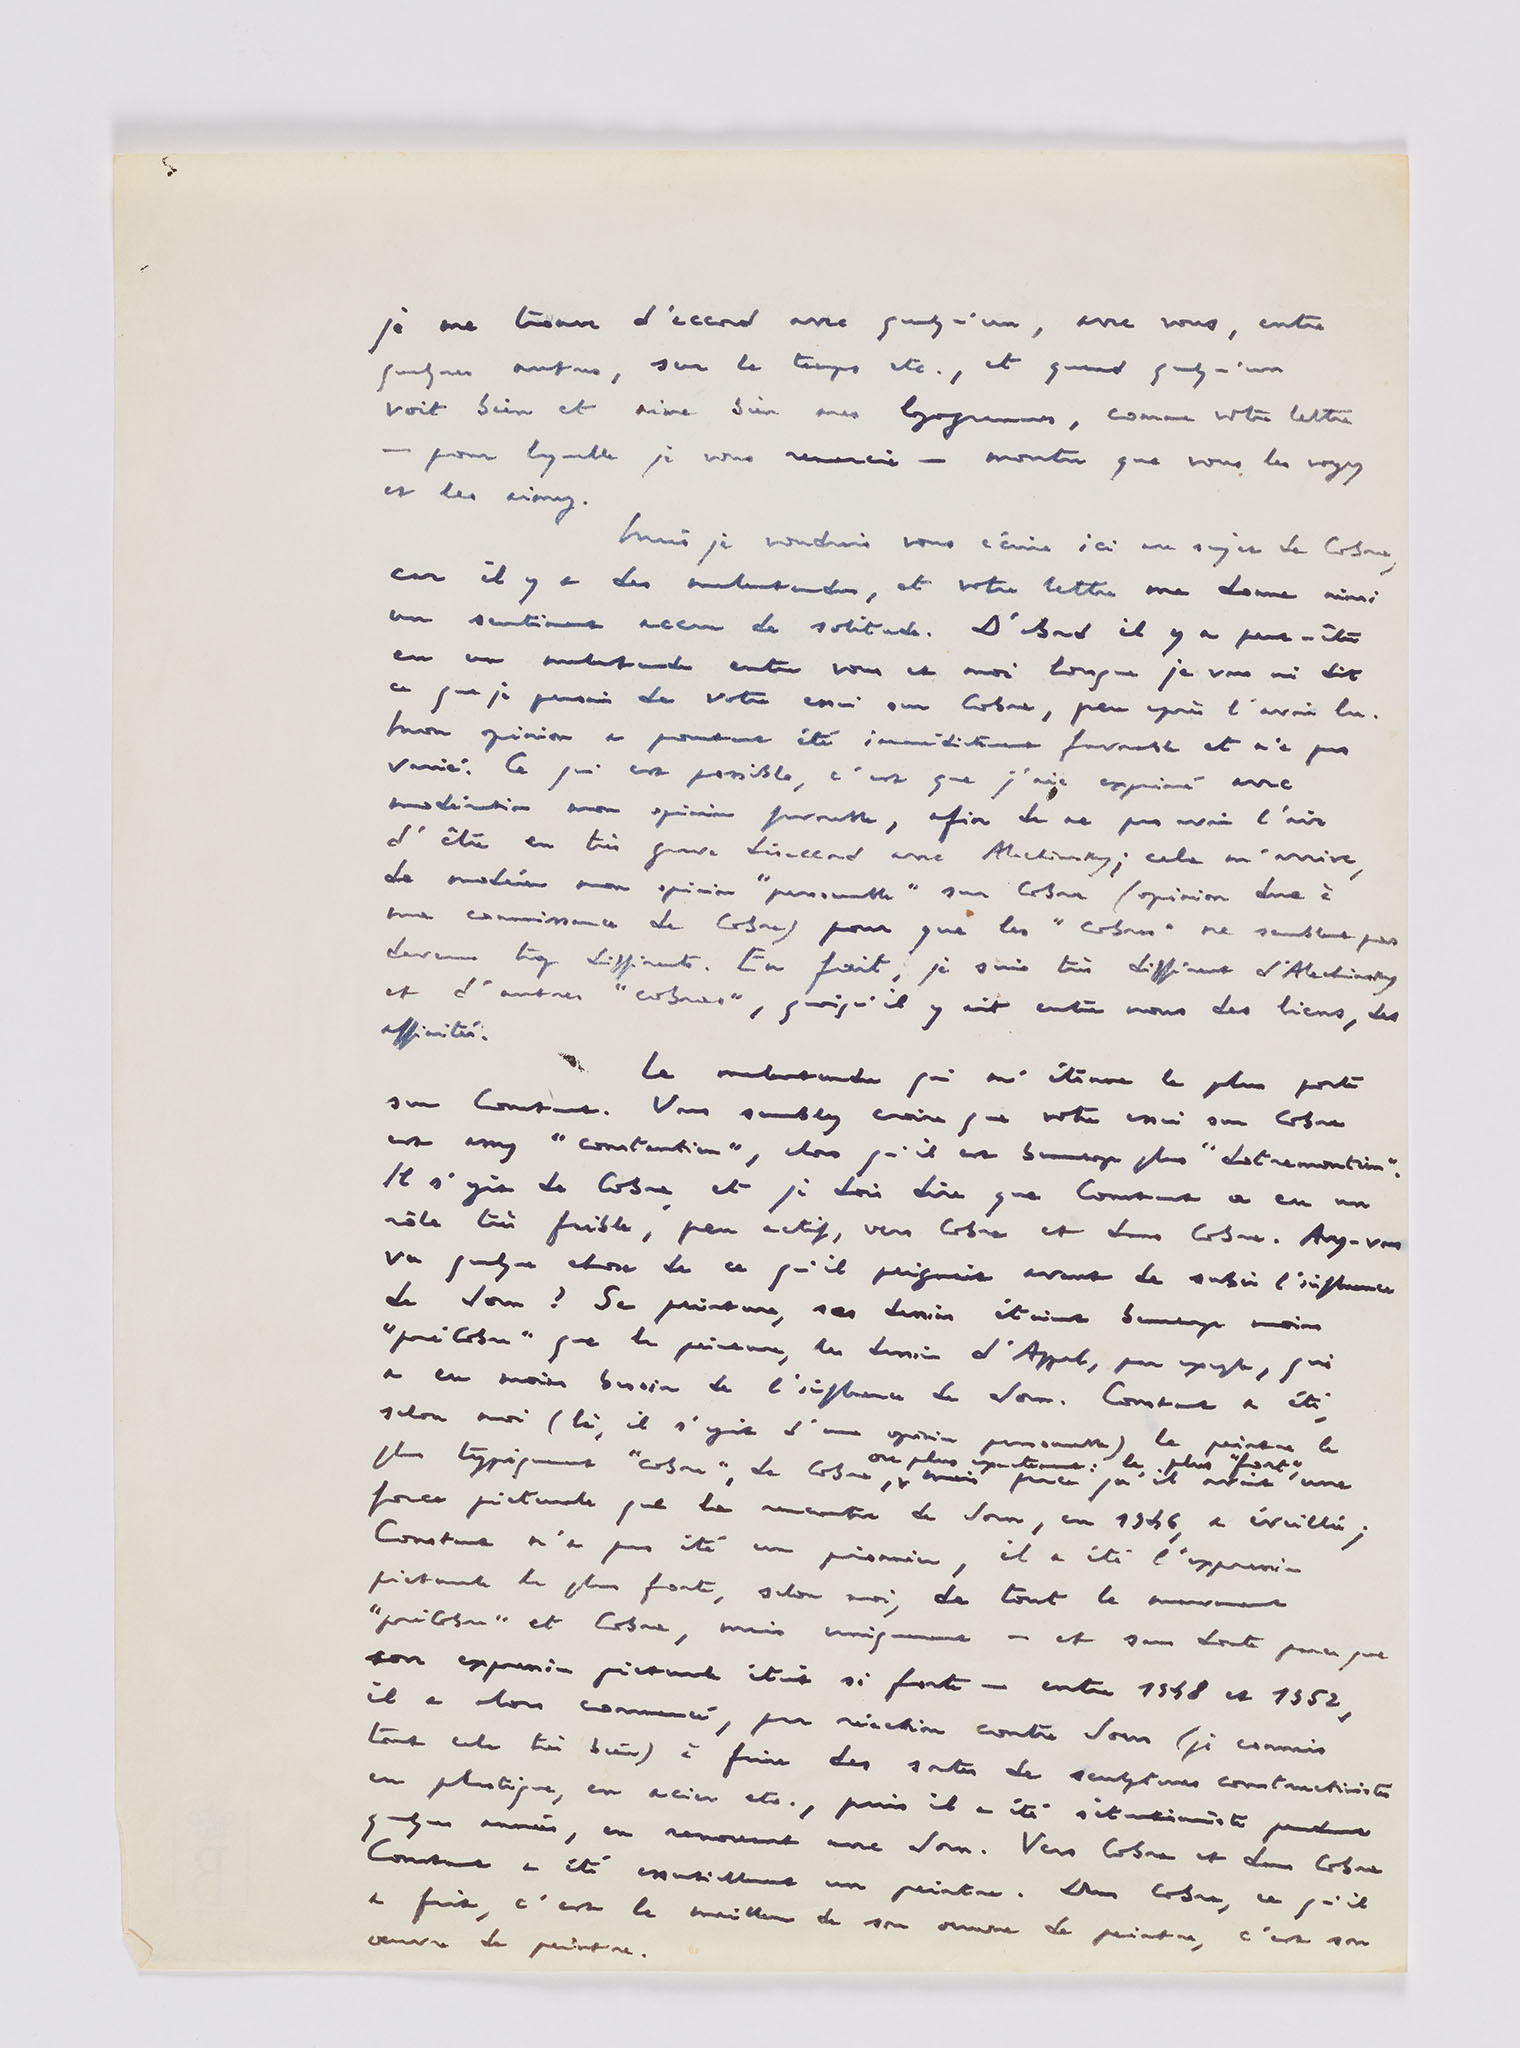 je me trouve d'accord avec quelqu'un, avec vous, entre
quelques autres, sur le temps etc., et quand quelqu'un
voit bien et aime bien mes logogrammes, comme votre lettre
— pour laquelle je vous remercie — montre que vous les voyez
et les aimez.
Mais je voudrais vous écrire ici au sujet de Cobra,
car il y a des malentendus, et votre lettre me donne ainsi
un sentiment accru de solitude. D'abord il y a peut-être
eu un malentendu entre vous et moi lorsque je vous ai dit
ce que je pensais de votre essai sur Cobra, peu après l'avoir lu.
Mon opinion a pourtant été immédiatement favorable et n'a pas
varié. Ce qui est possible, c'est que j'aie exprimé avec
modération mon opinion favorable, afin de ne pas avoir l'air
d'être en très grave désaccord avec Alechinsky; cela m'arrive,
de modérer mon opinion "personnelle" sur Cobra (opinion due à
ma connaissance de Cobra) pour que les "Cobras" ne semblent pas
devenus trop différents. En fait, je suis très différent d'Alechinsky
et d'autres "cobras", quoiqu'il y ait entre nous des liens, des
affinités.
Le malentendu qui m'étonne le plus porte
sur Constant. Vous semblez croire que votre essai sur Cobra
est assez "constantien", alors qu'il est beaucoup plus "dotremontien".
Il s'agit de Cobra, et je dois dire que Constant a eu un
rôle très faible, peu actif, vers Cobra et dans Cobra. Avez-vous
vu quelque chose de ce qu'il peignait avant de subir l'influence
de Jorn? Sa peinture, ses dessins étaient beaucoup moins
"préCobra" que la peinture, les dessins d'Appel, par exemple, qui
a eu moins besoin de l'influence de Jorn. Constant a été,
selon moi (là, il s'agit d'une opinion personnelle) le peintre le
plus typiquement "Cobra", de Cobra, ou plus exactement: le plus "fort", mais parce qu'il avait une
force picturale que la rencontre de Jorn, en 1946, a éveillée;
Constant n'a pas été un pionnier, il a été l'expression
picturale la plus forte, selon moi, de tout le mouvement
"préCobra" et Cobra, mais uniquement — et sans doute parce que
son expression picturale était si forte — entre 1948 et 1952,
il a alors commencé, par réaction contre Jorn (je connais
tout cela très bien) à faire des sortes de sculptures constructivistes
en plastique, en acier etc., puis il a été situationniste pendant
quelques années, en renouant avec Jorn. Vers Cobra et dans Cobra
Constant a été essentiellement un peintre. Dans Cobra, ce qu'il
a fait, c'est le meilleur de son oeuvre de peintre, c'est son
oeuvre de peintre.